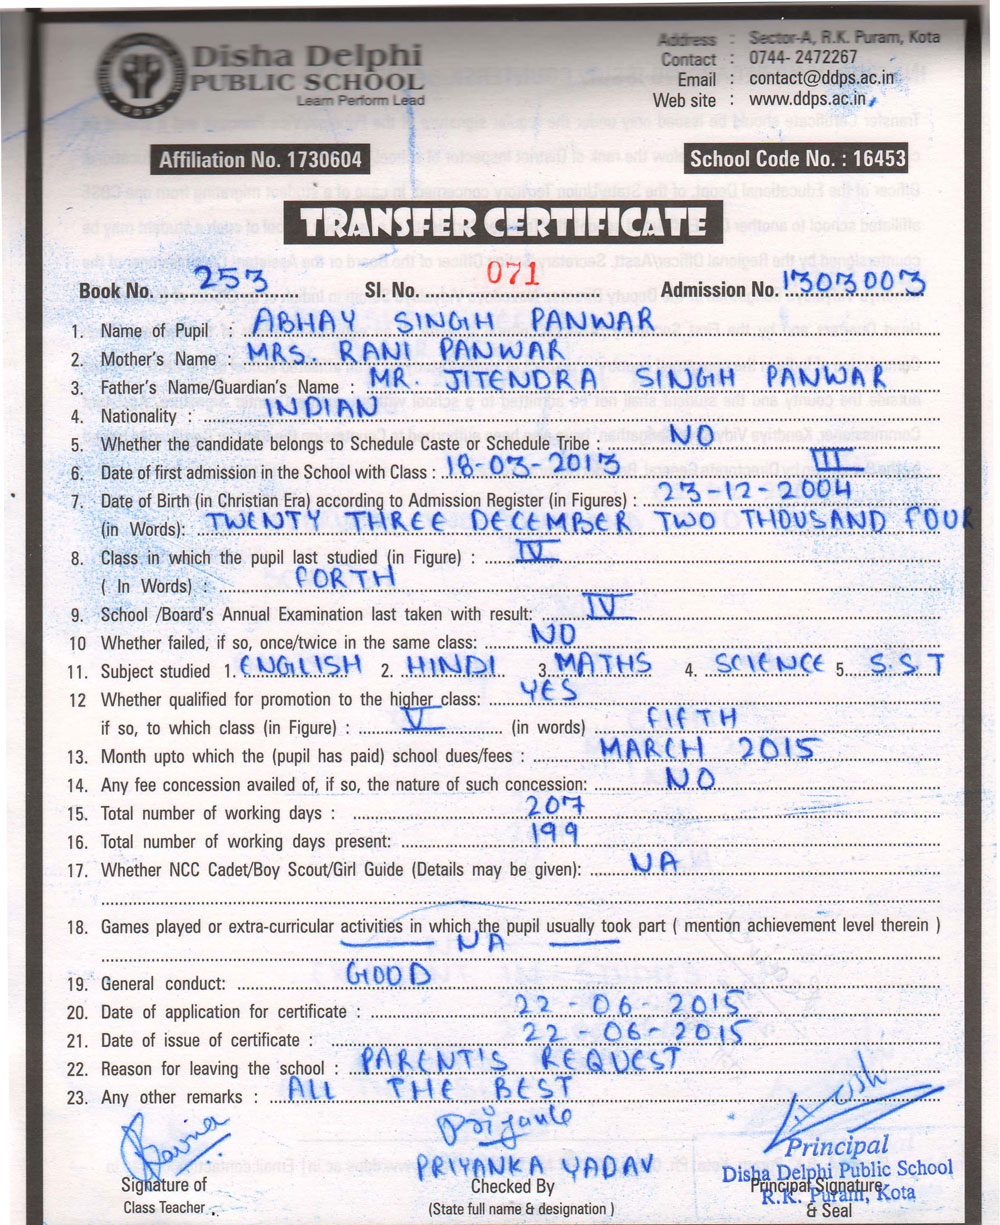 Disha Delphi
PUBLIC SCHOOL
Learn Perform Lead
DDPS
Address : Sector-A, R.K. Puram, Kota
Contact : 0744- 2472267
Email : contact@ddps.ac.in
Web site : www.ddps.ac.in
Affiliation No. 1730604
School Code No. : 16453
TRANSFER CERTIFICATE
Book No. 253 Sl. No. 071 Admission No. 1303003
1. Name of Pupil : ABHAY SINGH PANWAR
2. Mother's Name : MRS. RANI PANWAR
3. Father's Name/Guardian's Name : MR. JITENDRA SINGH PANWAR
4. Nationality : INDIAN
5. Whether the candidate belongs to Schedule Caste or Schedule Tribe : NO
6. Date of first admission in the School with Class : 18-03-2013 III
7. Date of Birth (in Christian Era) according to Admission Register (in Figures) : 23-12-2004
(in Words): TWENTY THREE DECEMBER TWO THOUSAND FOUR
8. Class in which the pupil last studied (in Figure) : IV
( In Words) : FORTH
9. School /Board's Annual Examination last taken with result: IV
10 Whether failed, if so, once/twice in the same class: NO
11. Subject studied 1. ENGLISH 2. HINDI 3. MATHS 4. SCIENCE 5. S.S.T
12 Whether qualified for promotion to the higher class: YES
if so, to which class (in Figure) : V (in words) FIFTH
13. Month upto which the (pupil has paid) school dues/fees : MARCH 2015
14. Any fee concession availed of, if so, the nature of such concession: NO
15. Total number of working days : 207
16. Total number of working days present: 199
17. Whether NCC Cadet/Boy Scout/Girl Guide (Details may be given): NA
18. Games played or extra-curricular activities in which the pupil usually took part ( mention achievement level therein )
NA
19. General conduct: GOOD
20. Date of application for certificate : 22-06-2015
21. Date of issue of certificate : 22-06-2015
22. Reason for leaving the school : PARENT'S REQUEST
23. Any other remarks : ALL THE BEST
Priyanka
PRIYANKA YADAV
Signature of
Class Teacher
Checked By
(State full name & designation )
Principal
Disha Delphi Public School
R.K. Puram, Kota
Principal Signature
& Seal